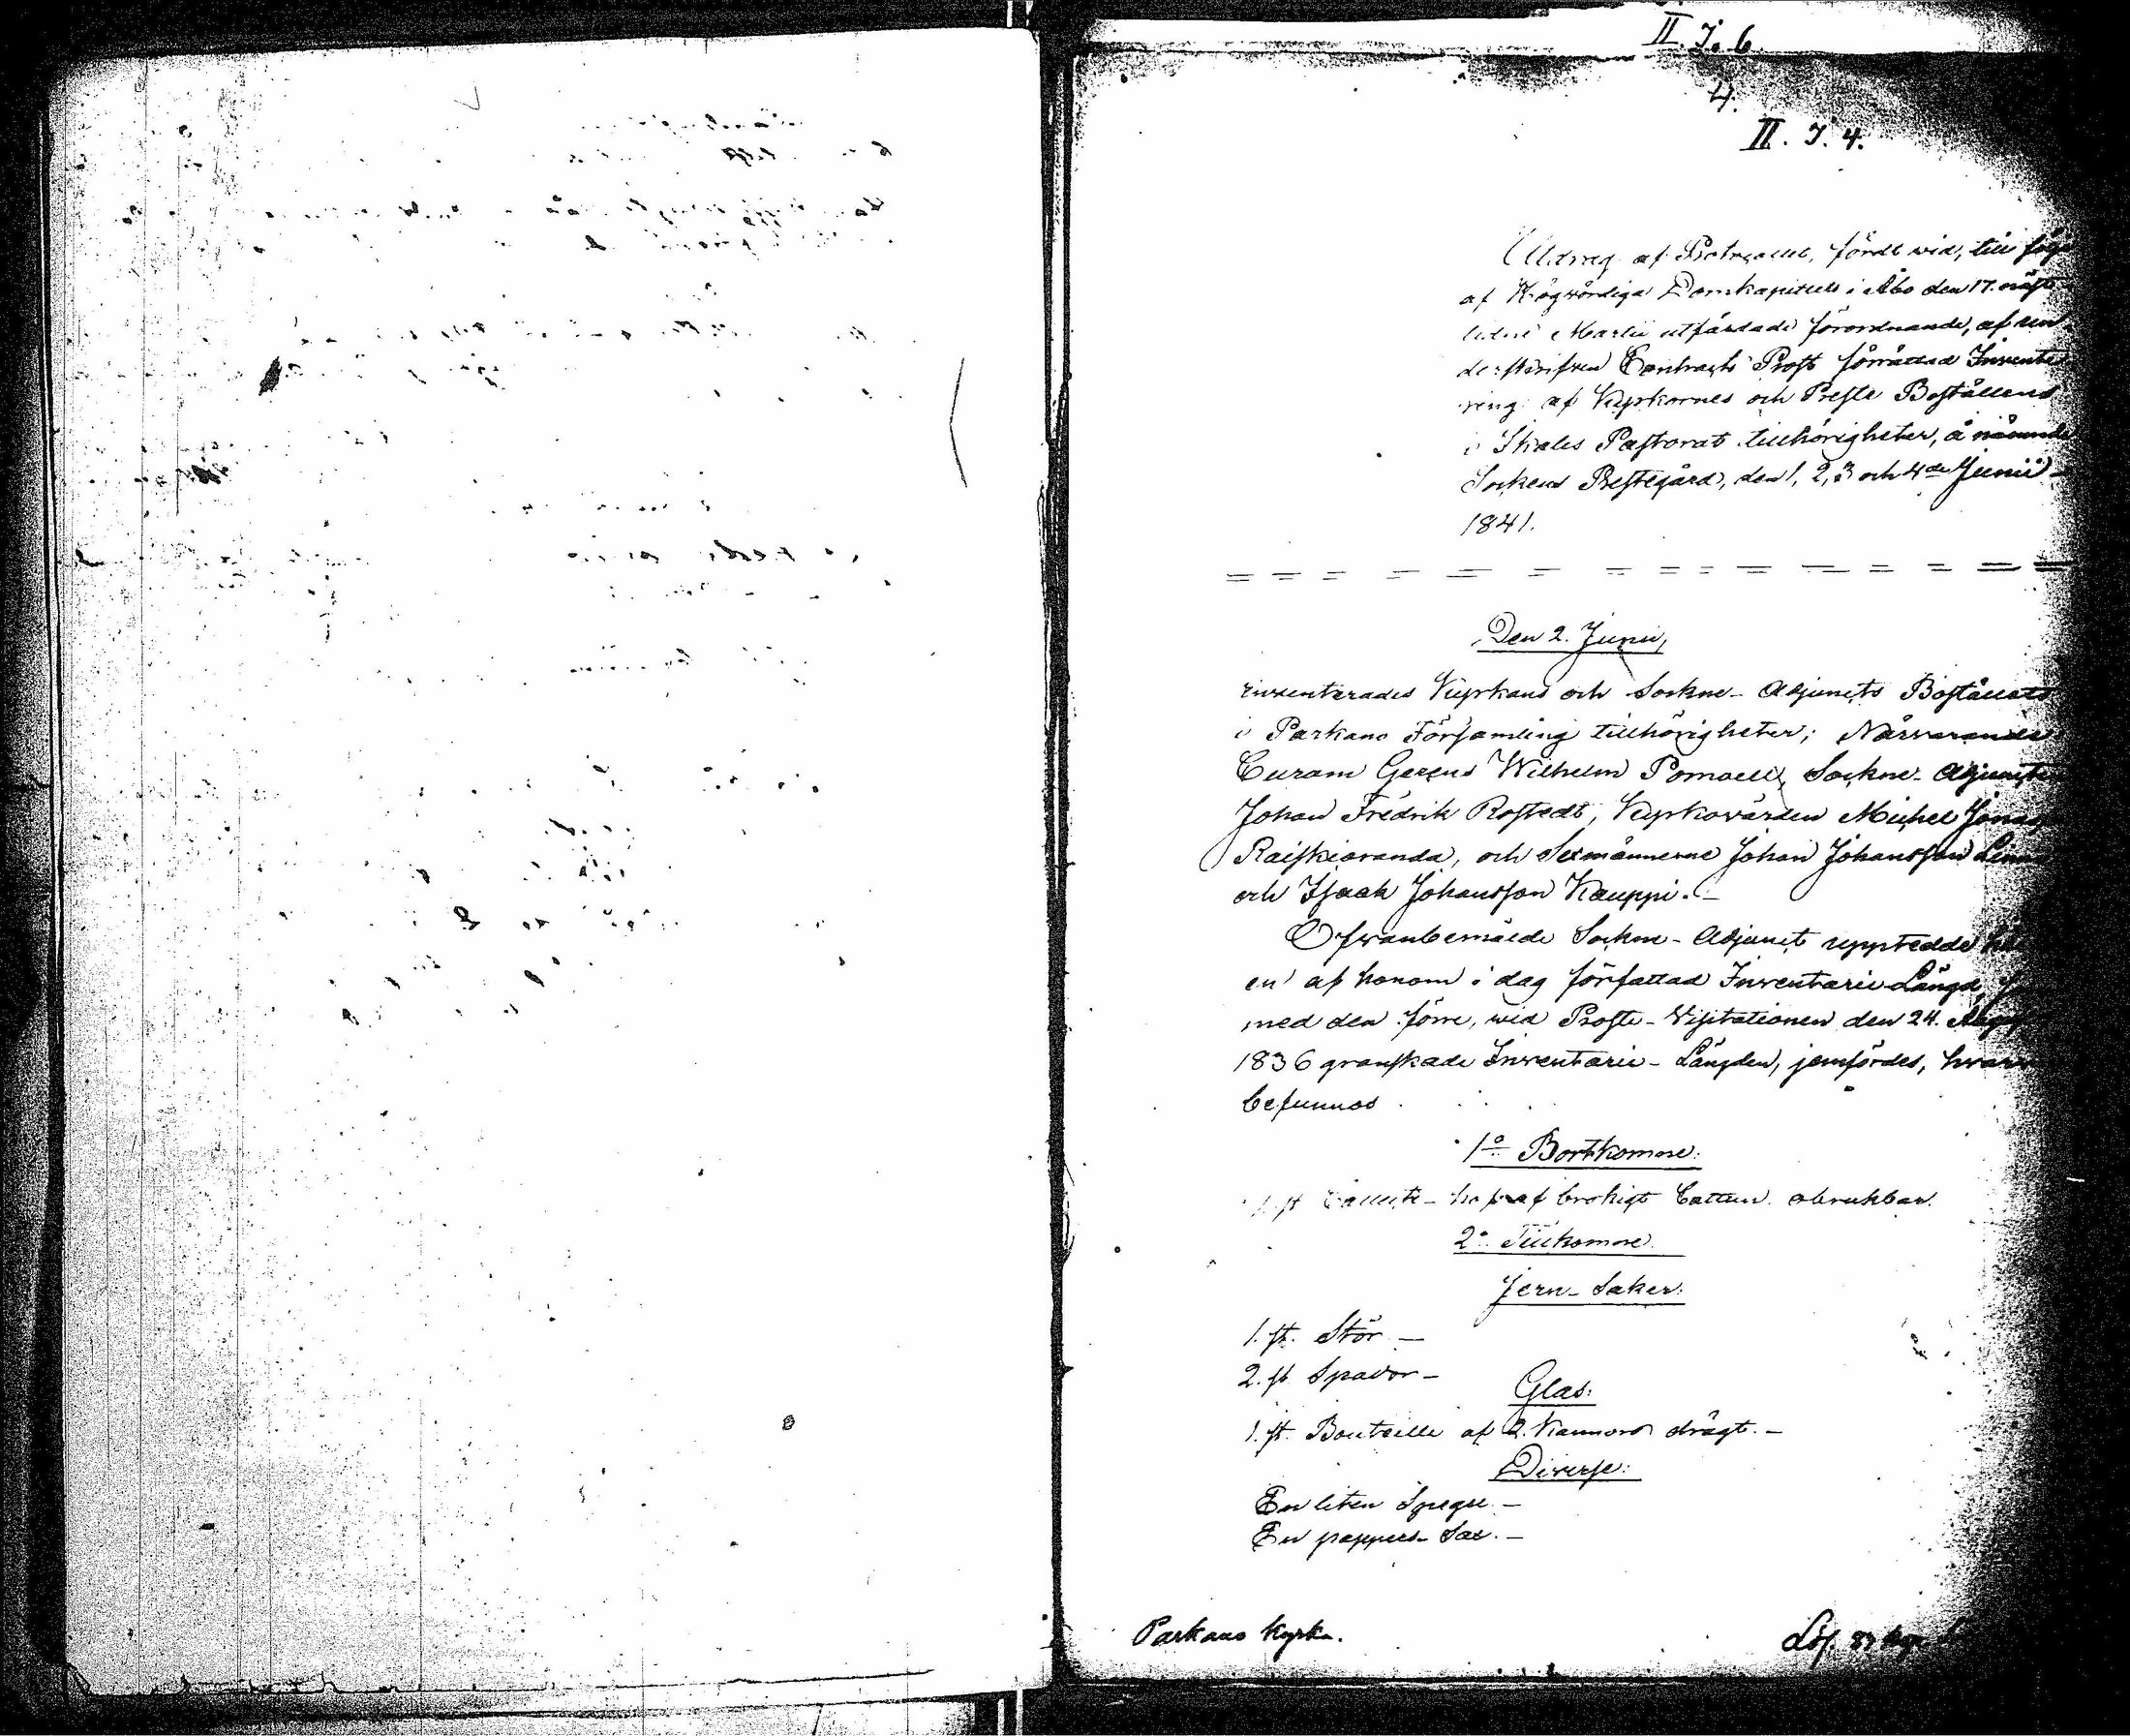 II. J. 6
4.
II. J. 4.
Utdrag af Protocoll, fördt wid, till följe
af Högwördiga Domkapitlets i Åbo den 17. näst
lidne Martii utfärdade förordnande, af un
derskrifven Contracts Prost förrättad Invente
ring af Kyrkornes och Preste Boställens
i Ikalis Pastorat tillhörigheter, å nämnde
Sockens Prestegård, den 1, 2, 3 och 4de Junii
1841.
Den 2. Junii,
inventerades Kyrkans och Sockne-Adjuncts Boställets
i Parkano Församling tillhörigheter; Närvarande
Curam Gerens Wilhelm Pomoell, Sockne-Adjuncten
Johan Fredrik Rostedt, Kyrkovärden Michel
Raiskioranda, och Sexmännerne Johan Johansson
och Isaak Johansson Kauppi.
Ofvanbemälde Sockne-Adjunct uppteedde
en af honom i dag författad Inventarie Längd,
med den förre, wid Prosts-Visitationen den 24. Aug
1836 granskade Inventarie-Längden, jemfördes, hwar
befunnos
1o Bortkomne:
1. st Collect-håf af brokigt Cattun. obrukbar.
2o Tillkomne.
Jern-Saker:
1. st. Stör -
2. st Spador -
Glas:
1. st. Bouteille af 2. Kannors drägt. -
Diverse:
En liten Spegel -
En pappers Sax. -
Parkano Kyrka.